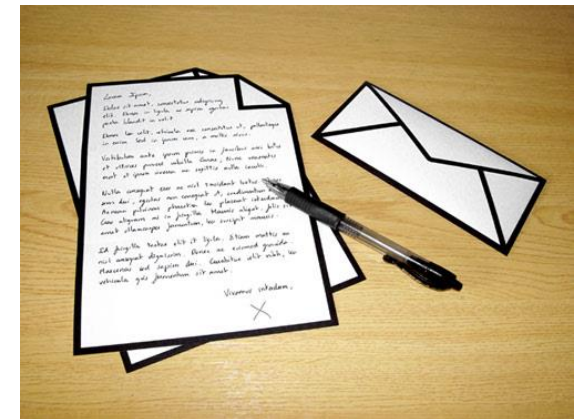 Lorem Ipsum,
Dolor sit amet, consectetur adipiscing
elit. Etiam in ligula ac sapien egestas
porta blandit in velit.
Etiam leo velit, vehicula nec consectetur et, pellentesque
in enim. Sed in ipsum sem, a mattis
Vestibulum ante ipsum primis in faucibus orci luctus
et ultrices posuere cubilia Curae;
erat et ipsum
Nulla consequat sem ac nisl tincidunt
arcu dui, egestas non consequat
Aenean pulvinar pharetra leo placerat
Cras aliquam mi in fringilla
amet ullamcorper fermentum, leo suscipit
Ed fringilla tortor elit et ligula. Etiam mattis ac
nisl consequat dignissim. Donec ac euismod gravida.
Maecenas sed sapien dui. Curabitur elit nibh,
vehicula quis fermentum sit amet.
Vivamus interdum,
X